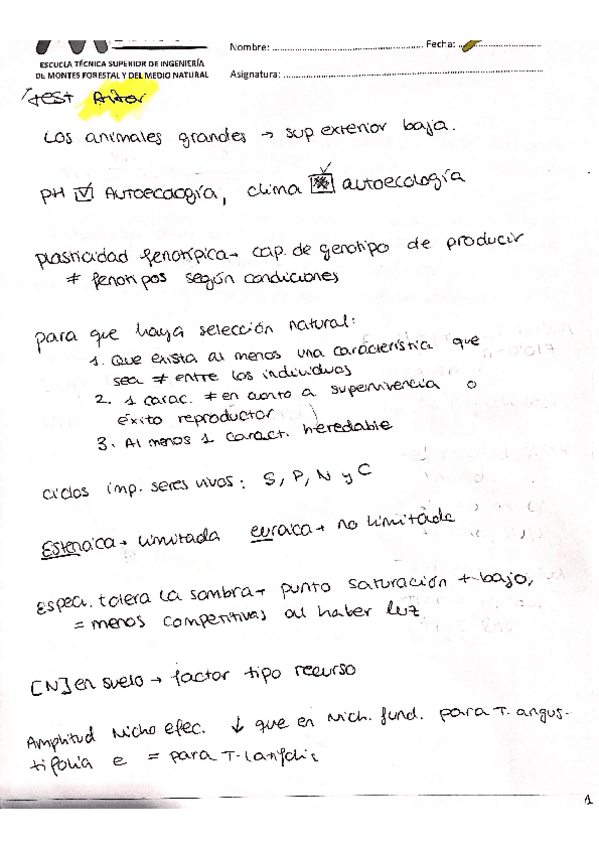 Nombre: Fecha:
ESCUELA TÉCNICA SUPERIOR DE INGENIERÍA
DE MONTES FORESTAL Y DEL MEDIO NATURAL
Asignatura:
test Aitor
Los animales grandes → sup exterior baja.
pH ☑ Autoecología, clima ☑ autoecología
plasticidad fenotípica → cap. de genotipo de producir
≠ fenotipos según condiciones
para que haya selección natural:
1. Que exista al menos una característica que
sea ≠ entre los individuos
2. 1 carac. ≠ en cuanto a supervivencia o
éxito reproductor
3. Al menos 1 caract. heredable
ciclos imp. seres vivos: S, P, N y C
Estenoica → limitada euroica → no limitada
Especi. tolera la sombra → punto saturación + bajo,
= menos competitivas al haber luz
[N] en suelo → factor tipo recurso
Amplitud Nicho efec. ↓ que en Nich. fund. para T. angus-
tifolia e = para T. latifolia
1